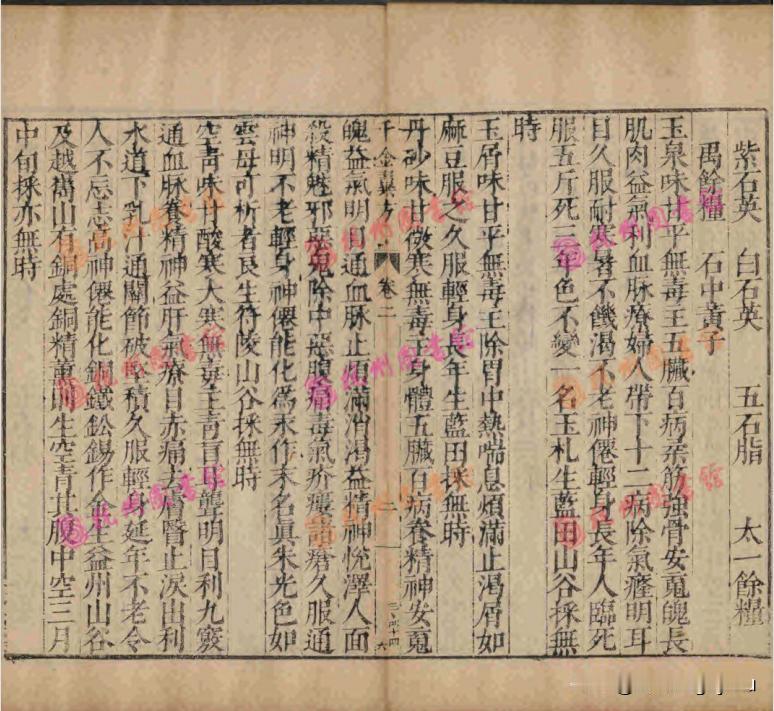 紫石英 白石英 五石脂 太一餘糧
禹餘糧 石中黃子
玉泉味甘平無毒主五臟百病柔筋強骨安䰟魄長
肌肉益氣利血脉療婦人帶下十二病除氣癃明耳
目久服耐寒暑不饑渴不老神僊輕身長年人臨死
服五斤死三年色不變一名玉札生藍田山谷採無
時
玉屑味甘平無毒主除胃中熱喘息煩滿止渴屑如
麻豆服之久服輕身長年生藍田採無時
丹砂味甘微寒無毒主身體五臟百病養精神安䰟
千金翼方 卷二 二
魄益氣明目通血脉止煩滿消渴益精神悅澤人面
殺精魅邪惡鬼除中惡腹痛毒氣疥瘻諸瘡久服通
神明不老輕身神僊能化爲汞作末名眞朱光色如
雲母可析者良生符陵山谷採無時
空青味甘酸寒大寒無毒主青盲耳聾明目利九竅
通血脉養精神益肝氣療目赤痛去膚翳止淚出利
水道下乳汁通關節破堅積久服輕身延年不老令
人不忘志高神僊能化銅鐵鈆錫作金生益州山谷
及越嶲山有銅處銅精薰則生空青其腹中空三月
中旬採亦無時
杭州图书馆
杭州图书馆
杭州图书馆
杭州图书馆
杭州图书馆
杭州图书馆
杭州图书馆
杭州图书馆
杭州图书馆